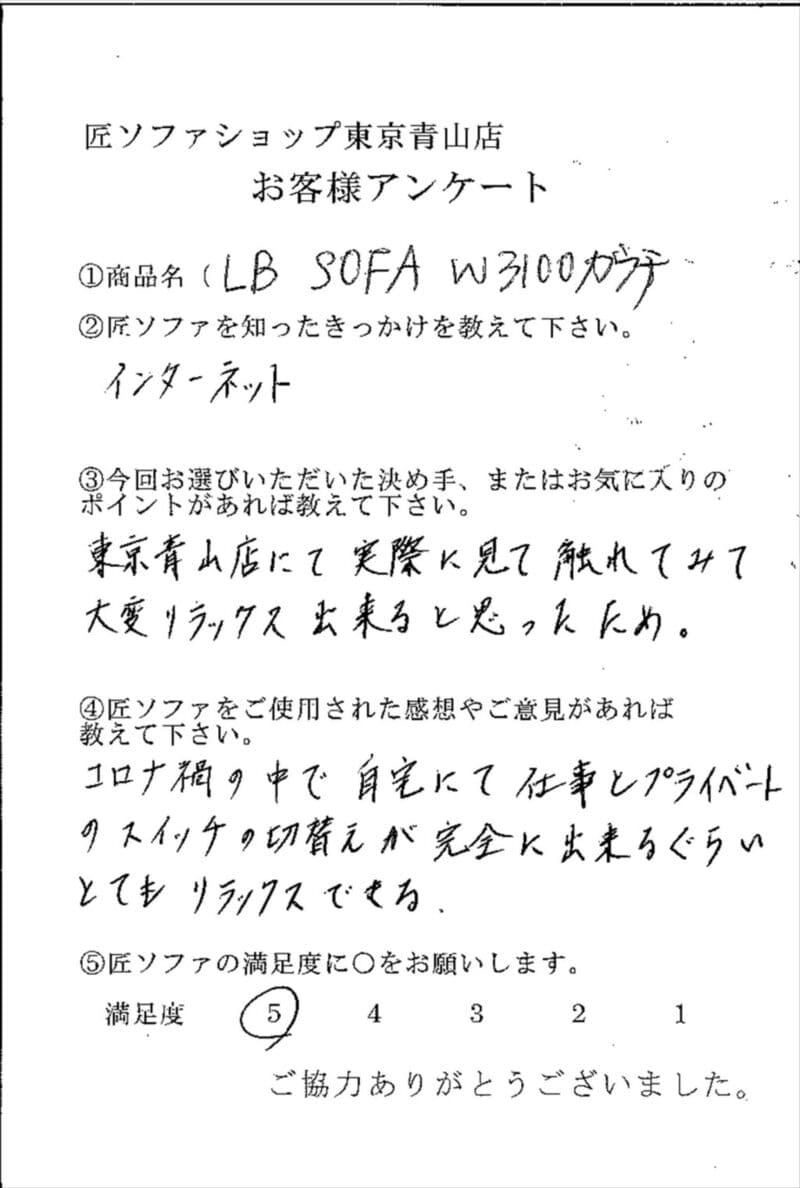 匠ソファショップ東京青山店
お客様アンケート
①商品名（LB SOFA W3100カウチ
②匠ソファを知ったきっかけを教えて下さい。
インターネット
③今回お選びいただいた決め手、またはお気に入りの
ポイントがあれば教えて下さい。
東京青山店にて実際に見て触れてみて
大変リラックス出来ると思ったため。
④匠ソファをご使用された感想やご意見があれば
教えて下さい。
コロナ禍の中で自宅にて仕事とプライベート
のスイッチの切替えが完全に出来るぐらい
とてもリラックスできる.
⑤匠ソファの満足度に○をお願いします。
満足度 5 4 3 2 1
ご協力ありがとうございました。